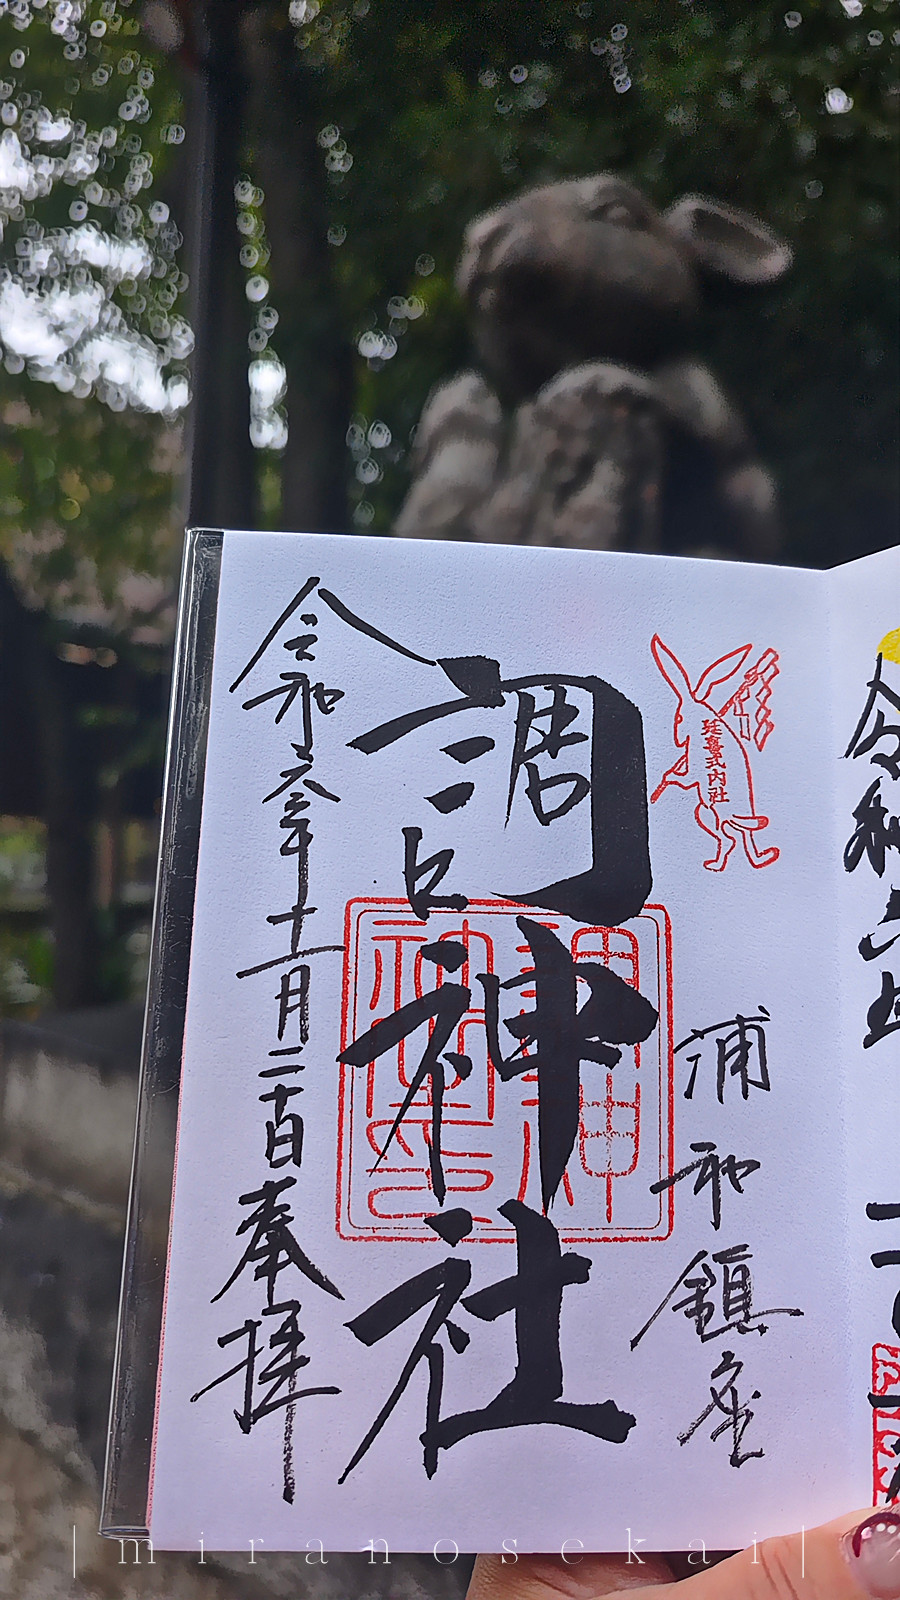 延喜式内社
浦和鎮座
調神社
令和六年十一月二十一日奉拝
|miranosekai|